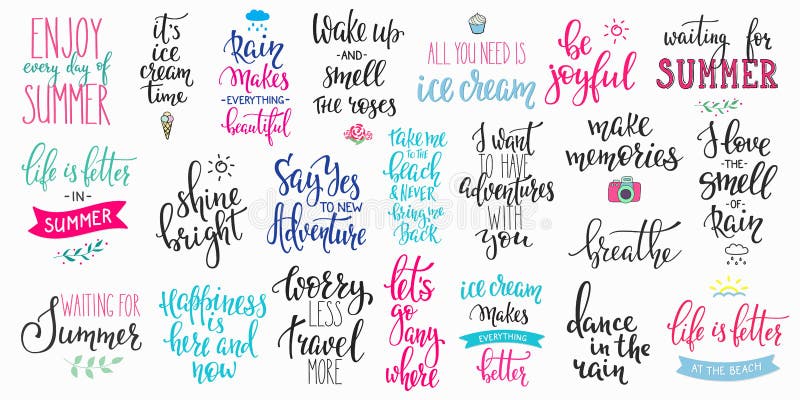 ENJOY
every day of
SUMMER
it's
ice
cream
time
Rain
Makes
-EVERYTHING-
beautiful
Wake up
-AND-
smell
THE ROSES
ALL YOU NEED IS
ice cream
be
joyful
waiting for
SUMMER
life is better
- IN -
SUMMER
shine
bright
Say Yes
TO NEW
Adventure
take me
TO THE
beach
& NEVER
bring me
Back
I want
TO HAVE
adventures
WITH
you
make
memories
breathe
I love
-THE-
smell
-OF-
Rain
WAITING FOR
Summer
Happiness
is
here and
now
worry
LESS
travel
MORE
let's
go
any
where
ice cream
MAKES
EVERYTHING
better
dance
in the
rain
life is better
AT THE BEACH